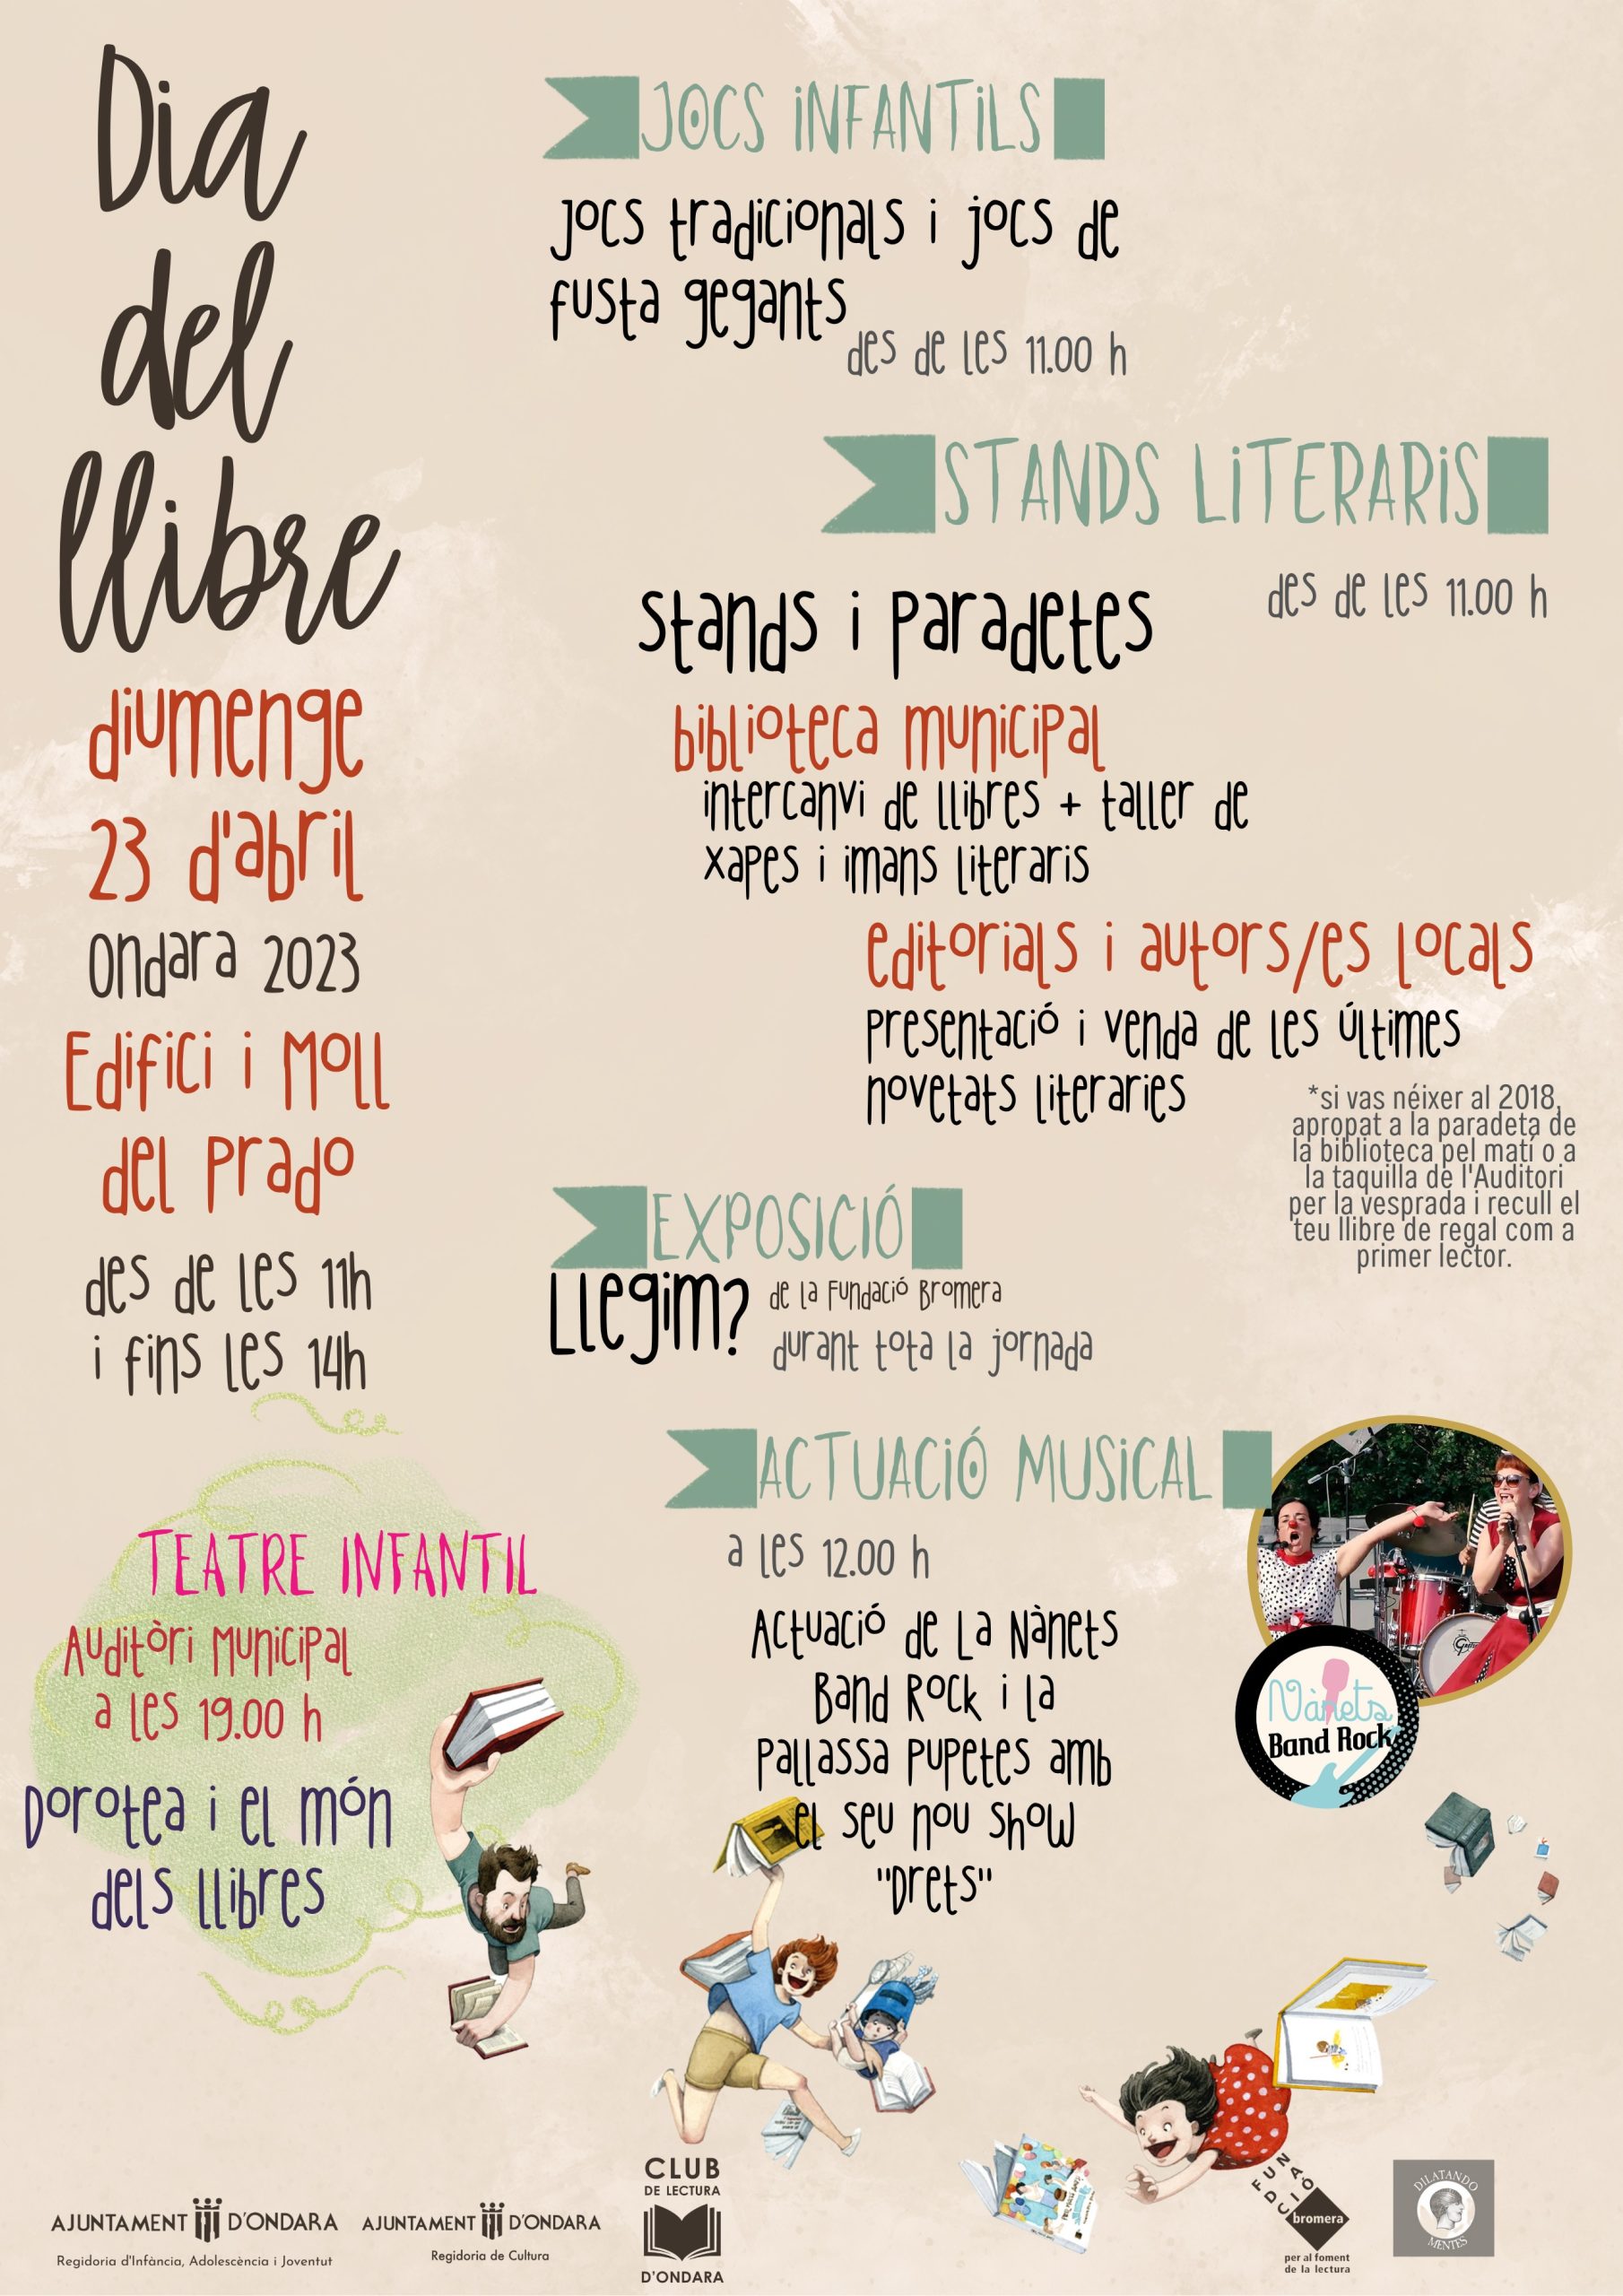 Dia
del
llibre
diumenge
23 d'abril
Ondara 2023
Edifici i Moll
del Prado
des de les 11h
i fins les 14h
JOCS INFANTILS
Jocs tradicionals i jocs de
fusta gegants
des de les 11.00 h
STANDS LITERARIS
des de les 11.00 h
Stands i paradetes
biblioteca municipal
intercanvi de llibres + taller de
xapes i imans literaris
editorials i autors/es locals
presentació i venda de les últimes
novetats literaries
*si vas néixer al 2018,
apropat a la paradeta de
la biblioteca pel matí o a
la taquilla de l'Auditori
per la vesprada i recull el
teu llibre de regal com a
primer lector.
EXPOSICIÓ
Llegim?
de la Fundació Bromera
durant tota la jornada
ACTUACIÓ MUSICAL
a les 12.00 h
Actuació de La Nànets
Band Rock i la
Pallassa Pupetes amb
el seu nou show
"Drets"
Nànets
Band Rock
TEATRE INFANTIL
Auditòri Municipal
a les 19.00 h
Dorotea i el món
dels llibres
AJUNTAMENT D'ONDARA
Regidoria d'Infància, Adolescència i Joventut
AJUNTAMENT D'ONDARA
Regidoria de Cultura
CLUB
DE LECTURA
D'ONDARA
FUNDACIÓ
bromera
per al foment
de la lectura
DILATANDO
MENTES